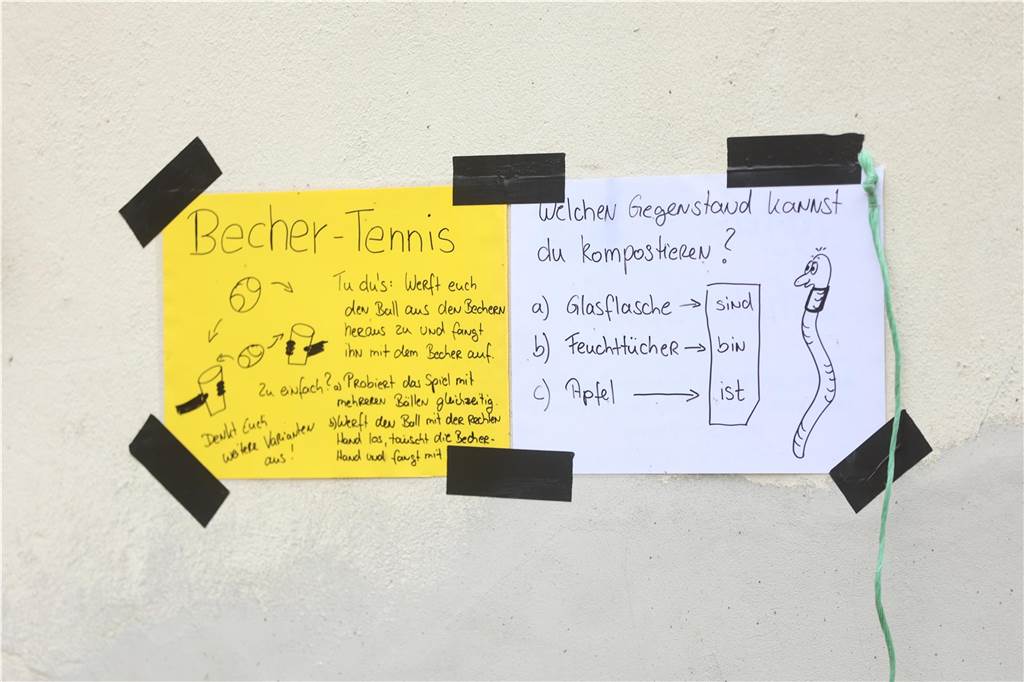 Becher-Tennis
Tu du's: Werft euch
den Ball aus den Bechern
heraus zu und fangt
ihn mit dem Becher auf.
Zu einfach? a) Probiert das Spiel mit
mehreren Bällen gleichzeitig.
b) Werft den Ball mit der rechten
Hand los, tauscht die Becher-
Hand und fangt mit
Denkt Euch
weitere Varianten
aus!
Welchen Gegenstand kannst
du kompostieren?
a) Glasflasche → sind
b) Feuchttücher → bin
c) Apfel → ist